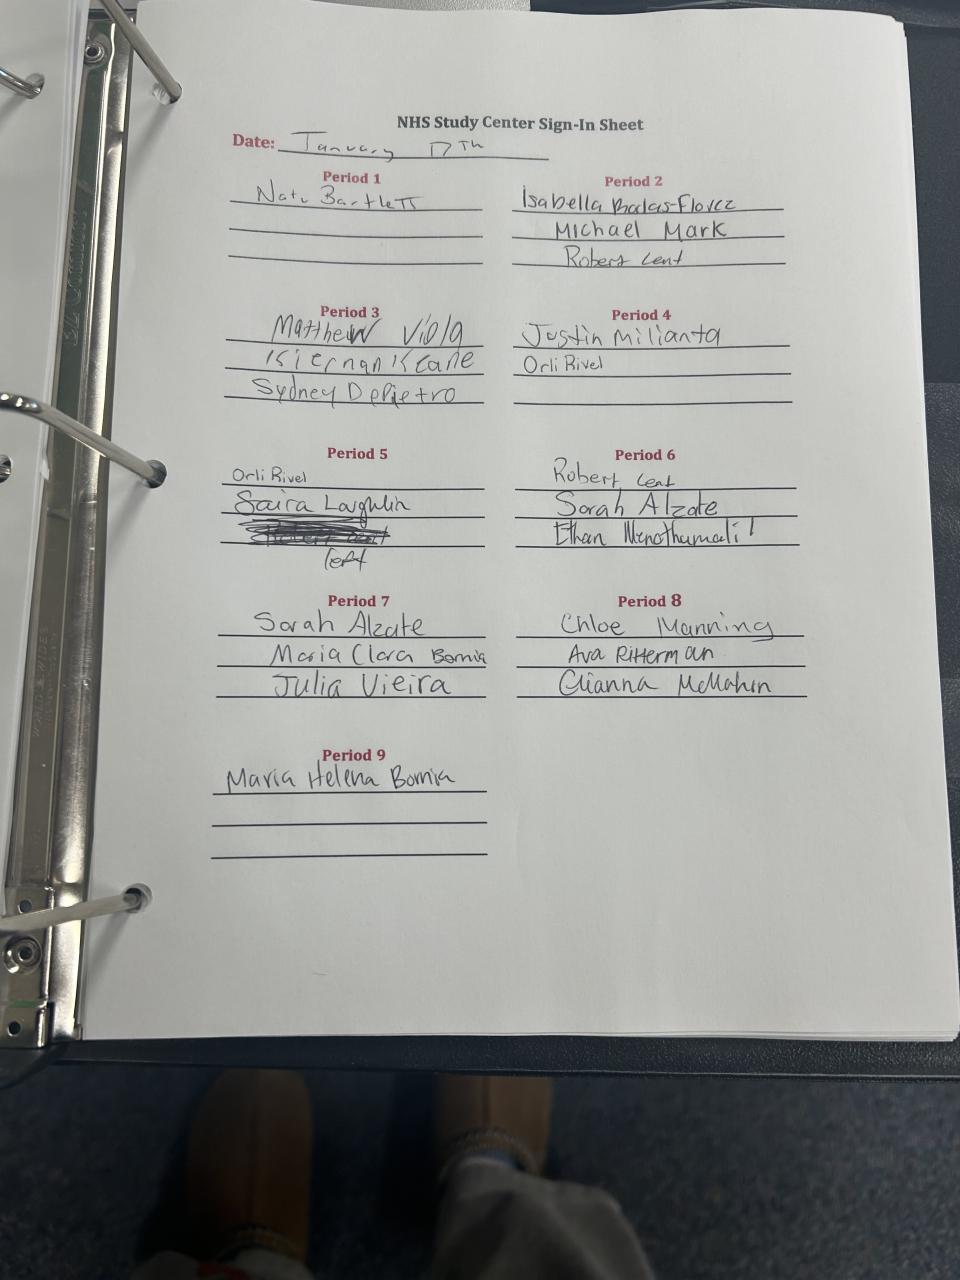 NHS Study Center Sign-In Sheet
Date: January 17Th
Period 1
Nate Bartlett
Period 2
Isabella -Florez
Michael Mark
Robert Lent
Period 3
Matthew Viola
Kiernan Kane
Sydney DePietro
Period 4
Justin Milianta
Orli Rivel
Period 5
Orli Rivel
Saira Loughlin
left
Period 6
Robert Lent
Sarah Alzate
Ethan
Period 7
Sarah Alzate
Maria Clara Bornia
Julia Vieira
Period 8
Chloe Manning
Ava Ritterman
Gianna McMahon
Period 9
Maria Helena Bornia